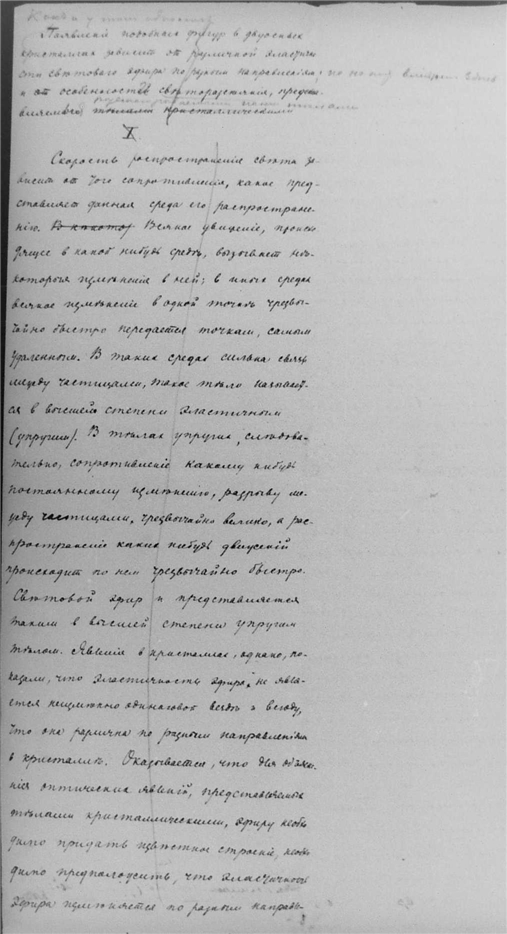 Явленія подобныхъ фигуръ в двуосныхъ
кристаллах зависитъ отъ различной эластично
сти свѣтового эфира по разным направленіямъ;
и от особенностей свѣторазсѣянія, предста
вляемаго тѣлами кристаллическими
I
Скорость распространенія свѣта за-
висит от того сопротивленія, какое пред-
ставляет данная среда его распростране-
нію. Всякое движеніе, проис
дящее в какой нибудь средѣ, вызывает нѣ-
которыя измѣненія в ней; в иных средах
всякое измѣненіе в одной точкѣ чрезвы-
чайно быстро передается точкам, самым
удаленным. В таких средах сильна связь
между частицами, такое тѣло называет-
ся в высшей степени эластичным
(упругим). В тѣлах упругих, слѣдова-
тельно, сопротивленіе какому нибудь
постоянному измѣненію, разрыву ме-
жду частицами, чрезвычайно велико, а рас-
пространеніе каких нибудь движеній
происходит по нем чрезвычайно быстро.
Свѣтовой эфир и представляется
таким в высшей степени упругим
тѣлом. Явленія в кристаллах, однако, по-
казали, что эластичность эфира не явля-
ется неизмѣнно одинаковой вездѣ и всюду,
что она различна по разным направленіям
в кристаллѣ. Оказывается, что для объясне-
нія оптических явленій, представляемых
тѣлами кристаллическими, эфиру необхо
димо придать извѣстное строеніе, необхо
димо предположить, что эластичность
эфира измѣняется по разным направле-